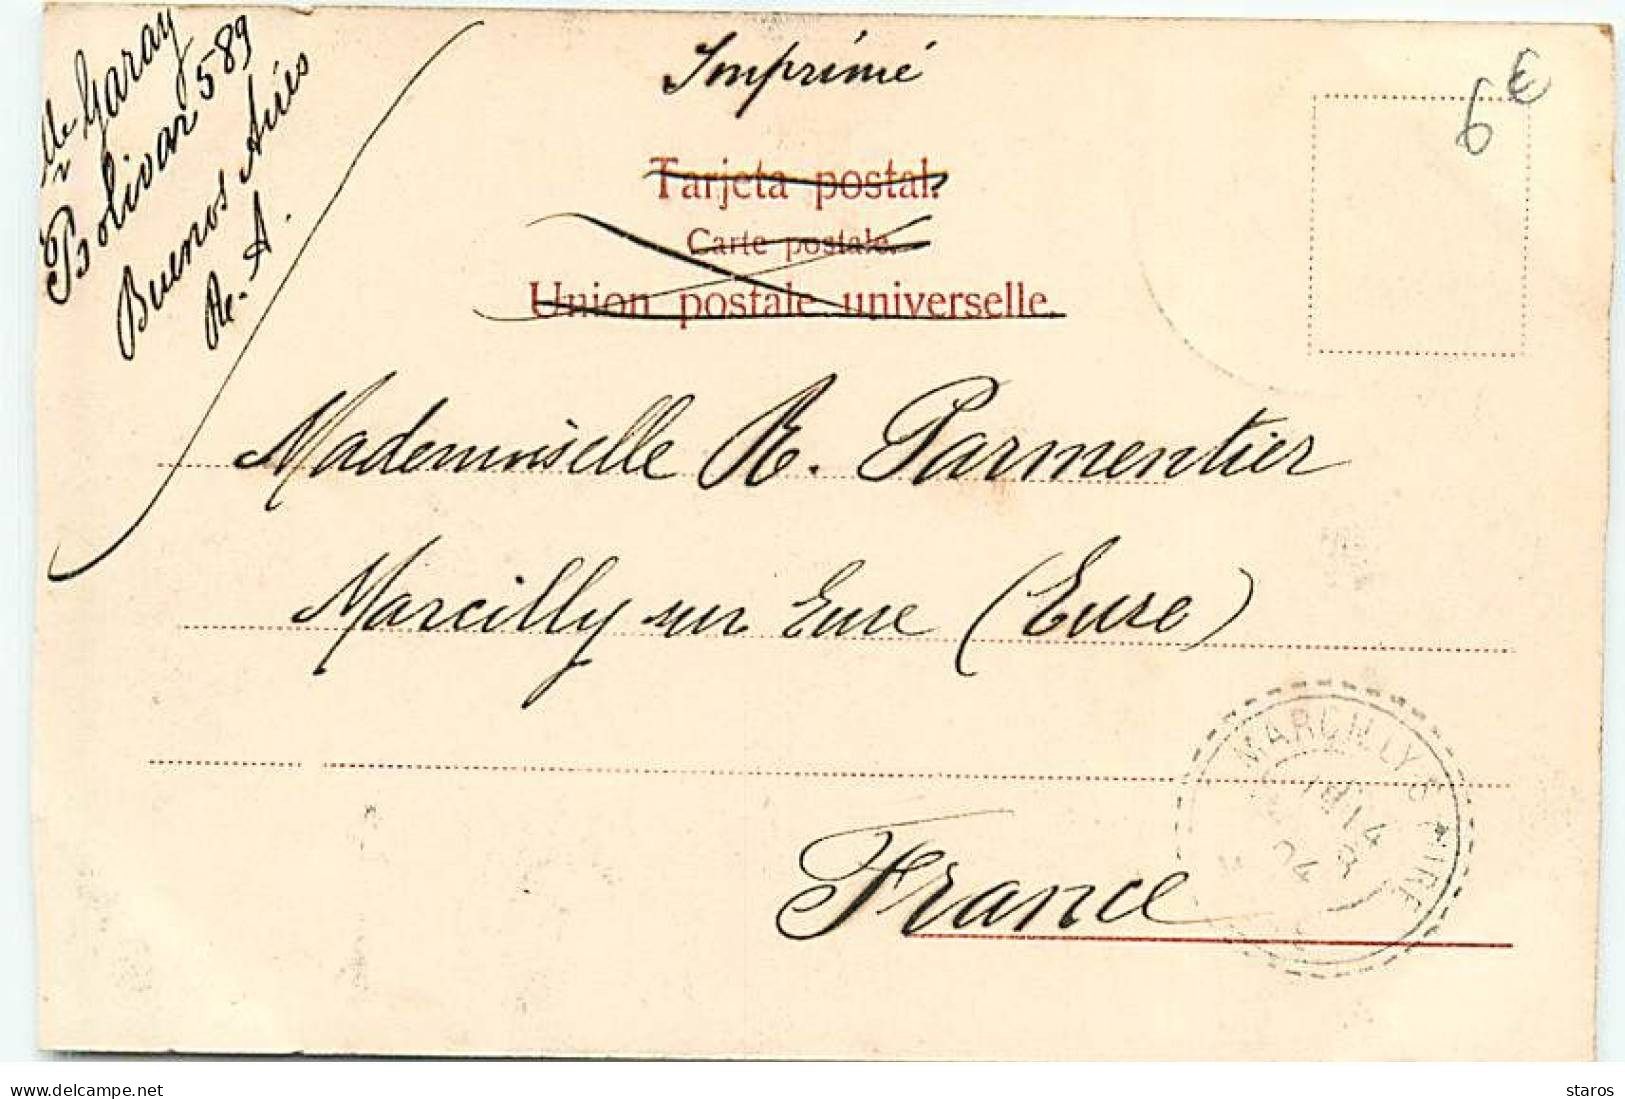 Mlle Garay
Bolivar 589
Buenos Aires
Re. A.
Imprimé
6€
Tarjeta postal.
Carte postale.
Union postale universelle.
Mademoiselle R. Parmentier
Marcilly sur Eure (Eure)
France
MARCILLY S EURE
04
delcampe.net
staros